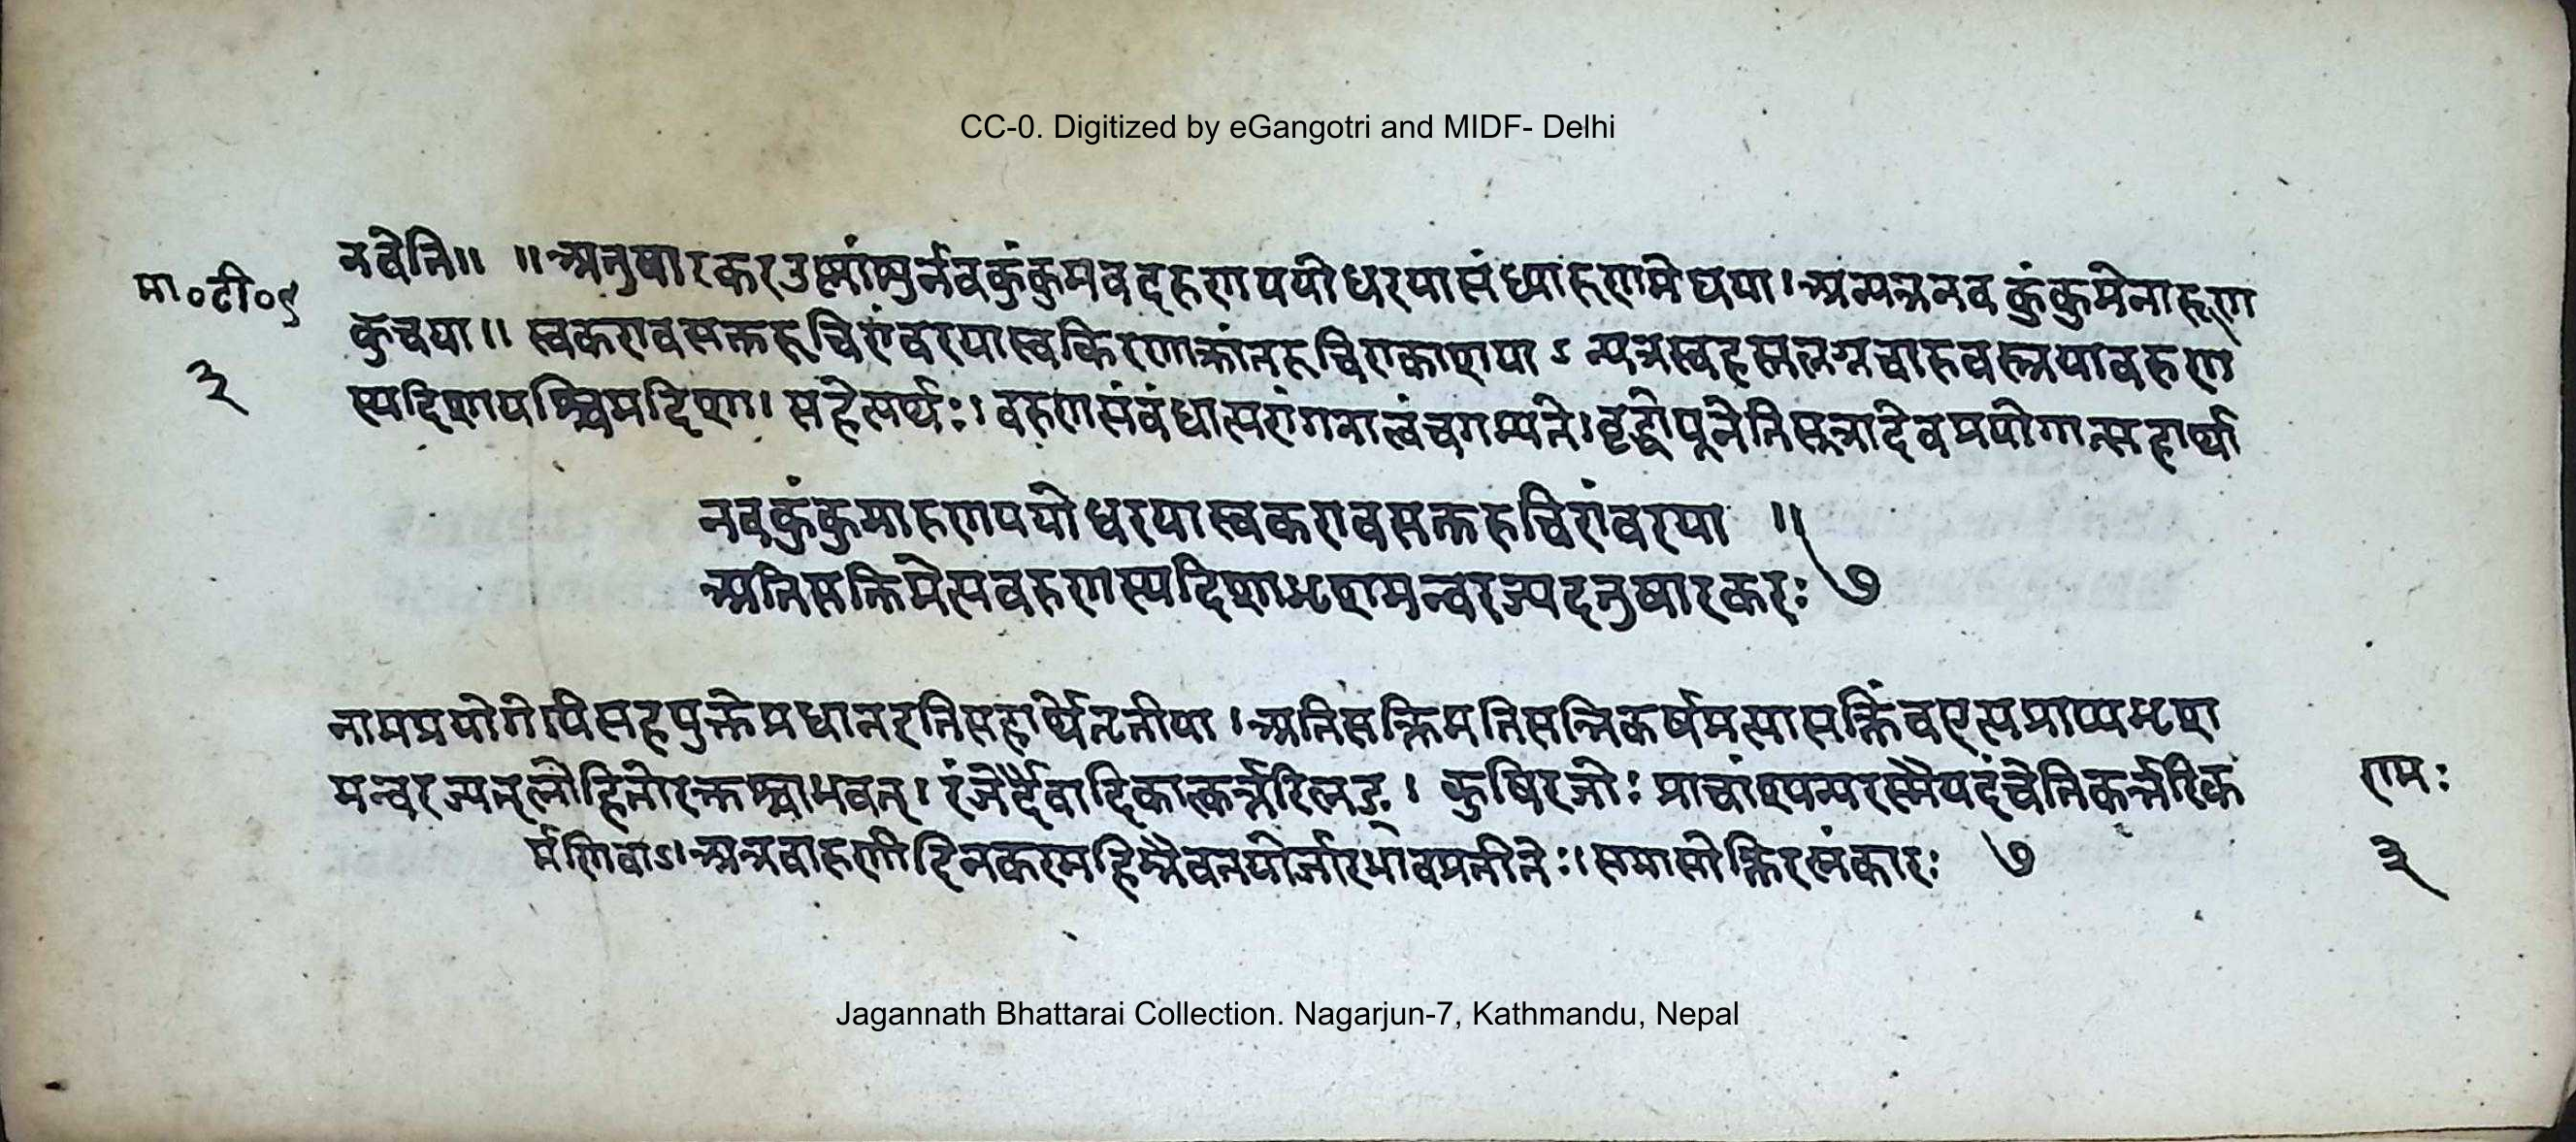 CC-0. Digitized by eGangotri and MIDF- Delhi
मा०टी०९
३
नवेति॥ ॥अतुषारकर उष्णांशुर्नवकुंकुमवदरुणपयोधरयासंध्यारुणमेघया।अन्यत्रनवकुंकुमेनारूण
कुचया॥ स्वकरावसक्तरूचिरांवरयास्वकिरणाक्रांतरूचिराकाशया ऽ न्यत्रस्वहस्तलग्नचारुवस्त्रयावरुण
स्यदिशापश्चिमदिशा। सहेत्यर्थः। वरुणसंवंधात्परांगनात्वंचगम्यते।वृद्धोयूनेतिसूत्रादेवप्रयोगात्सहार्था
नवकुंकुमारुणपयोधरयास्वकरावसक्तरुचिरांवरया ॥
अतिसक्तिमेत्यवरुणस्यदिशाभृशमन्वरज्यदतुषारकरः ७
नामप्रयोगेपिसहयुक्तेप्रधानइतिसहार्थेतृतीया ।अतिसक्तिमतिसन्निकर्षमत्यासक्तिंवएत्यप्राप्यभृश
मन्वरज्यत्लोहितोरक्तश्चाभवत्। रंजेर्दैवादिकात्कर्त्तरिलङ्। कुषिरजोः प्राचांश्यन्परस्मैपदंचेतिकर्त्तरिक
र्मणिवाऽ।अत्रवारुणीदिनकरमहिम्नैवतयोर्जारभावप्रतीतेः।समासोक्तिरलंकारः ७
रामः
३
Jagannath Bhattarai Collection. Nagarjun-7, Kathmandu, Nepal